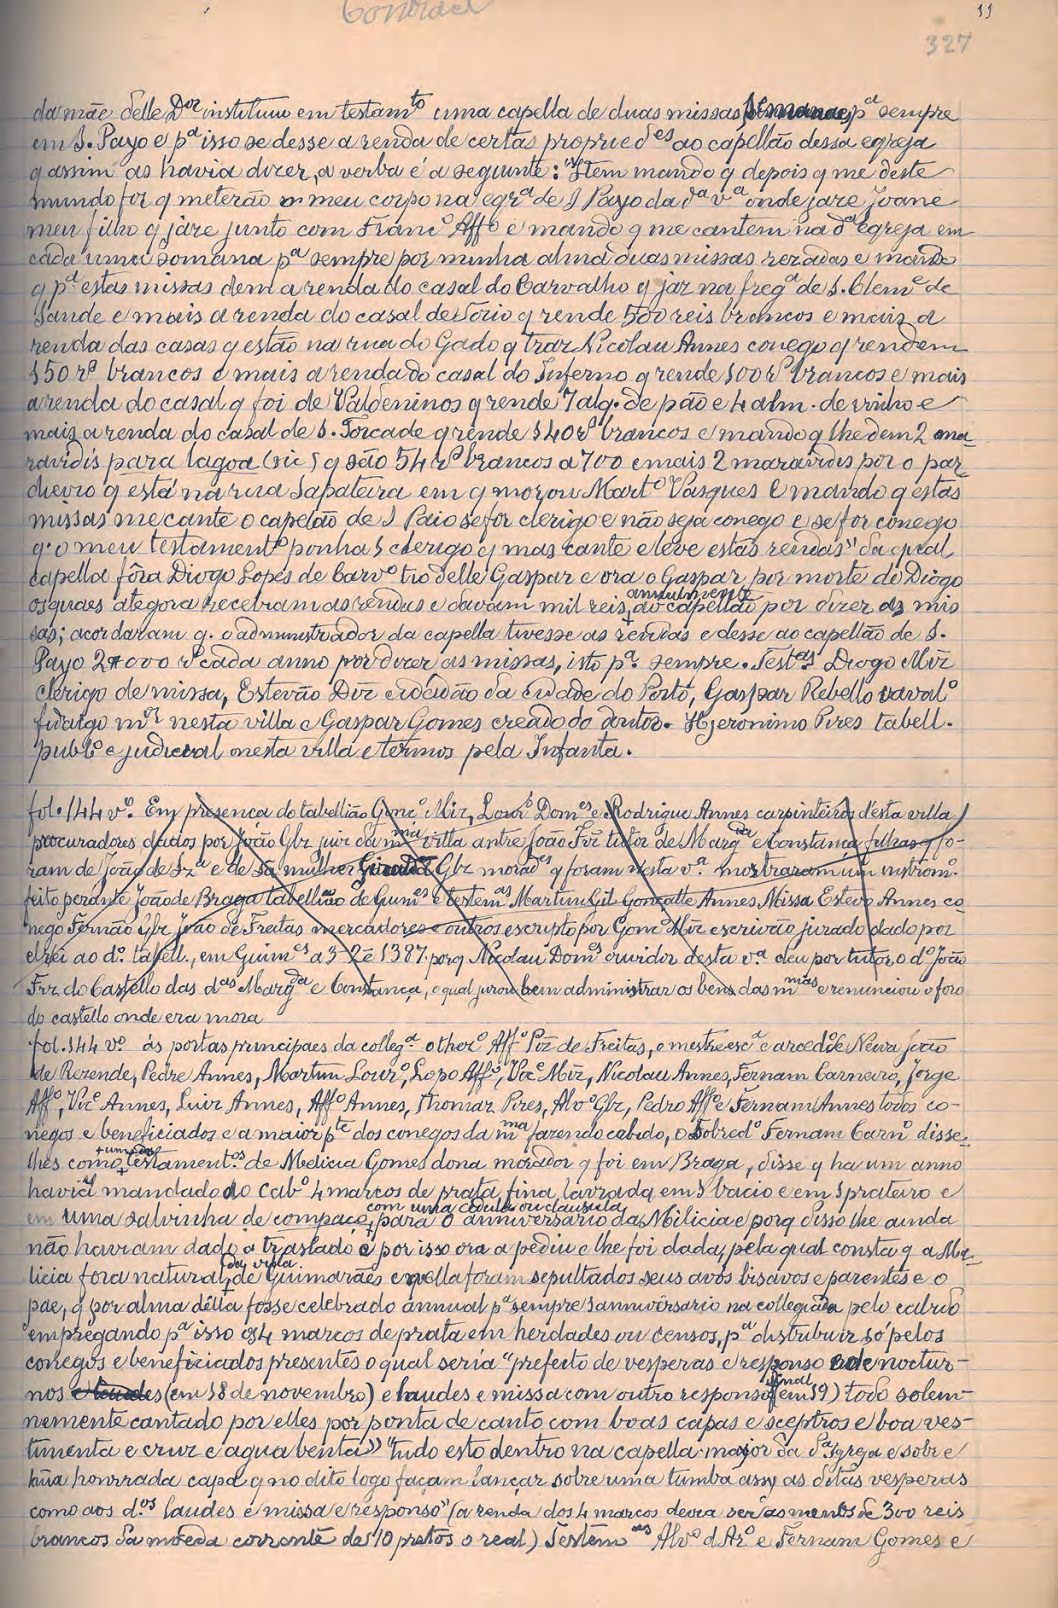 Contract
11
327
da mãe delle Dor instituiu em testamto uma capella de duas missas semanaes pa sempre
em S. Payo e pa isso se desse a renda de certas propriedes ao capellão dessa egreja
q assim as havia dizer, a verba é a seguinte: "Item mando q depois q me deste
mundo for q meterão meu corpo na egra de S Payo da da va onde jaze Joane
meu filho q jaze junto com Franco Affo e mando q me cantem na da egreja em
cada uma somana pa sempre por minha alma duas missas rezadas e mando
q pa estas missas dem a renda do casal do Carvalho q jaz na frega de S. Clemo de
Sande e mais a renda do casal de Sorio q rende 500 reis brancos e mais a
renda das casas q estão na rua do Gado q traz Nicolau Annes conego q rendem
150 rs brancos e mais a renda do casal do Inferno q rende 100 rs brancos e mais
a renda do casal q foi de Valdeninos q rende 7 alq. de pão e 4 alm. de vinho e
mais a renda do casal de S. Torcade q rende 140 rs brancos e mando q lhe dem 2 ma-
ravidis para lagoa (sic) q são 54 rs brancos a 700 e mais 2 maravidis por o par-
dieiro q está na rua Sapateira em q morou Marto Vasques E mando q estas
missas me cante o capelão de S Paio se for clerigo e não seja conego e se for conego
q. o meu testamento ponha 1 clerigo q mas cante e leve estas rendas" da qual
capella fôra Diogo Lopes de Carvo tio delle Gaspar e ora o Gaspar, por morte do Diogo
os quaes ategora receberam as rendas e davam mil reis annualmente ao capellão por dizer as mis
sas; acordaram q. o administrador da capella tivesse as rendas e desse ao capellão de S.
Payo 2#000 rs cada anno por dizer as missas, isto pa. sempre. Testas Diogo Miz
clerigo de missa, Estevão Diz cidadão da cidade do Porto, Gaspar Rebello cavalo
fidalgo mor nesta villa e Gaspar Gomes creado do doutor. Hjeronimo Pires tabell.
publo e judicial nesta villa e termos pela Infanta.
fol. 144 vo. Em presença do tabellião Gonço Miz, Louro Domes e Rodrigue Annes carpinteiros d'esta villa
procuradores dados por João Glz juiz da mma villa antre João Frz tutor de Margda e Constança filhas q fo-
ram de João de Sza e de sa mulher Glz moraes q foram nesta va. mostraram um instrom.
feito perante João de Braga tabellião de Guimes e testemas Martim Gil Gonçalle Annes Missa Estevo Annes co-
nego Fernão Glz João de Freitas mercadores e outros escripto por Gomo Miz escrivão jurado dado por
elrei ao do. tabell., em Guimes a 3-2-e 1387. porq Nicolau Domes ouvidor desta va. deu por tutor o do João
Frz. do Castello das das Margda e Constança, o qual jurou bem administrar os bens das mmas e renunciou o foro
do castello onde era mora
fol. 144 vo. ás portas principaes da collega. o thoro Affo Piz de Freitas, o mestre esca e arcedo de Neiva João
de Rezende, Pedre Annes, Martim Louro, Lopo Affo, Vic. Miz, Nicolau Annes, Fernam Carneiro, Jorge
Affo, Vico Annes, Luiz Annes, Affo Annes, Thomaz Pires, Alvo Glz, Pedro Affo e Fernam Annes todos co-
negos e beneficiados e a maior pte dos conegos da mma fazendo cabido, o sobredo Fernam Carno disse-
lhes como um dos testamentos de Melicia Gomes dona morador q foi em Braga, disse q ha um anno
havia mandado ao cabo 4 marcos de prata fina lavrada em 1 bacio e em 1 prateiro e
em uma salvinha de compaço, com uma cedula ou clausula para o anniversario da Milicia e porq disso lhe ainda
não haviam dado a traslado e por isso ora a pediu e lhe foi dada, pela qual consta q a Me-
licia fora natural da villa de Guimarães e nella foram sepultados seus avós bisavos e parentes e o
pae, q por alma délla fosse celebrado annual pa sempre 1 anniversario na collegiada pelo cabido
empregando pa isso os 4 marcos de prata em herdades ou censos, pa distribuir só pelos
conegos e beneficiados presentes o qual seria "prefeito de vesperas e responso e de noctur-
nos (em 18 de novembro) e laudes e missa com outro responso final (em 19) todo solem-
nemente cantado por elles por ponta de canto com boas capas e sceptros e boa ves-
timenta e cruz e agua benta" "tudo esto dentro na capella-major da da Igreja e sobre
hũa honrrada capa q no dito logo façam lançar sobre uma tumba assy as ditas vesperas
como aos d.os laudes e missa e responso" (a renda dos 4 marcos devea ser ao menos de 300 reis
brancos da moeda corrente de 10 pretos o real) Testemas Alvo d Azo e Fernam Gomes e